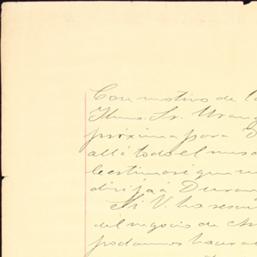 Con motivo de la
Ilmo. Sr. Urang
próxima para
allí todo el mes
le estimaré que
dirija á Duran
Si V. ha
del negocio de
podamos hacer